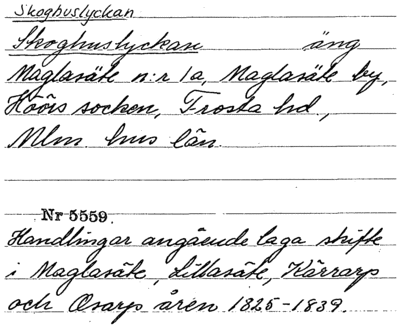 Skoghuslyckan
Skoghuslyckan äng
Maglasäte n:r 1a, Maglasäte by,
Höörs socken, Frosta hd,
Mlm hus län.
Nr 5559.
Handlingar angående laga skifte
i Maglasäte, Lillasäte, Kärrarp
och Osarp åren 1825-1839.